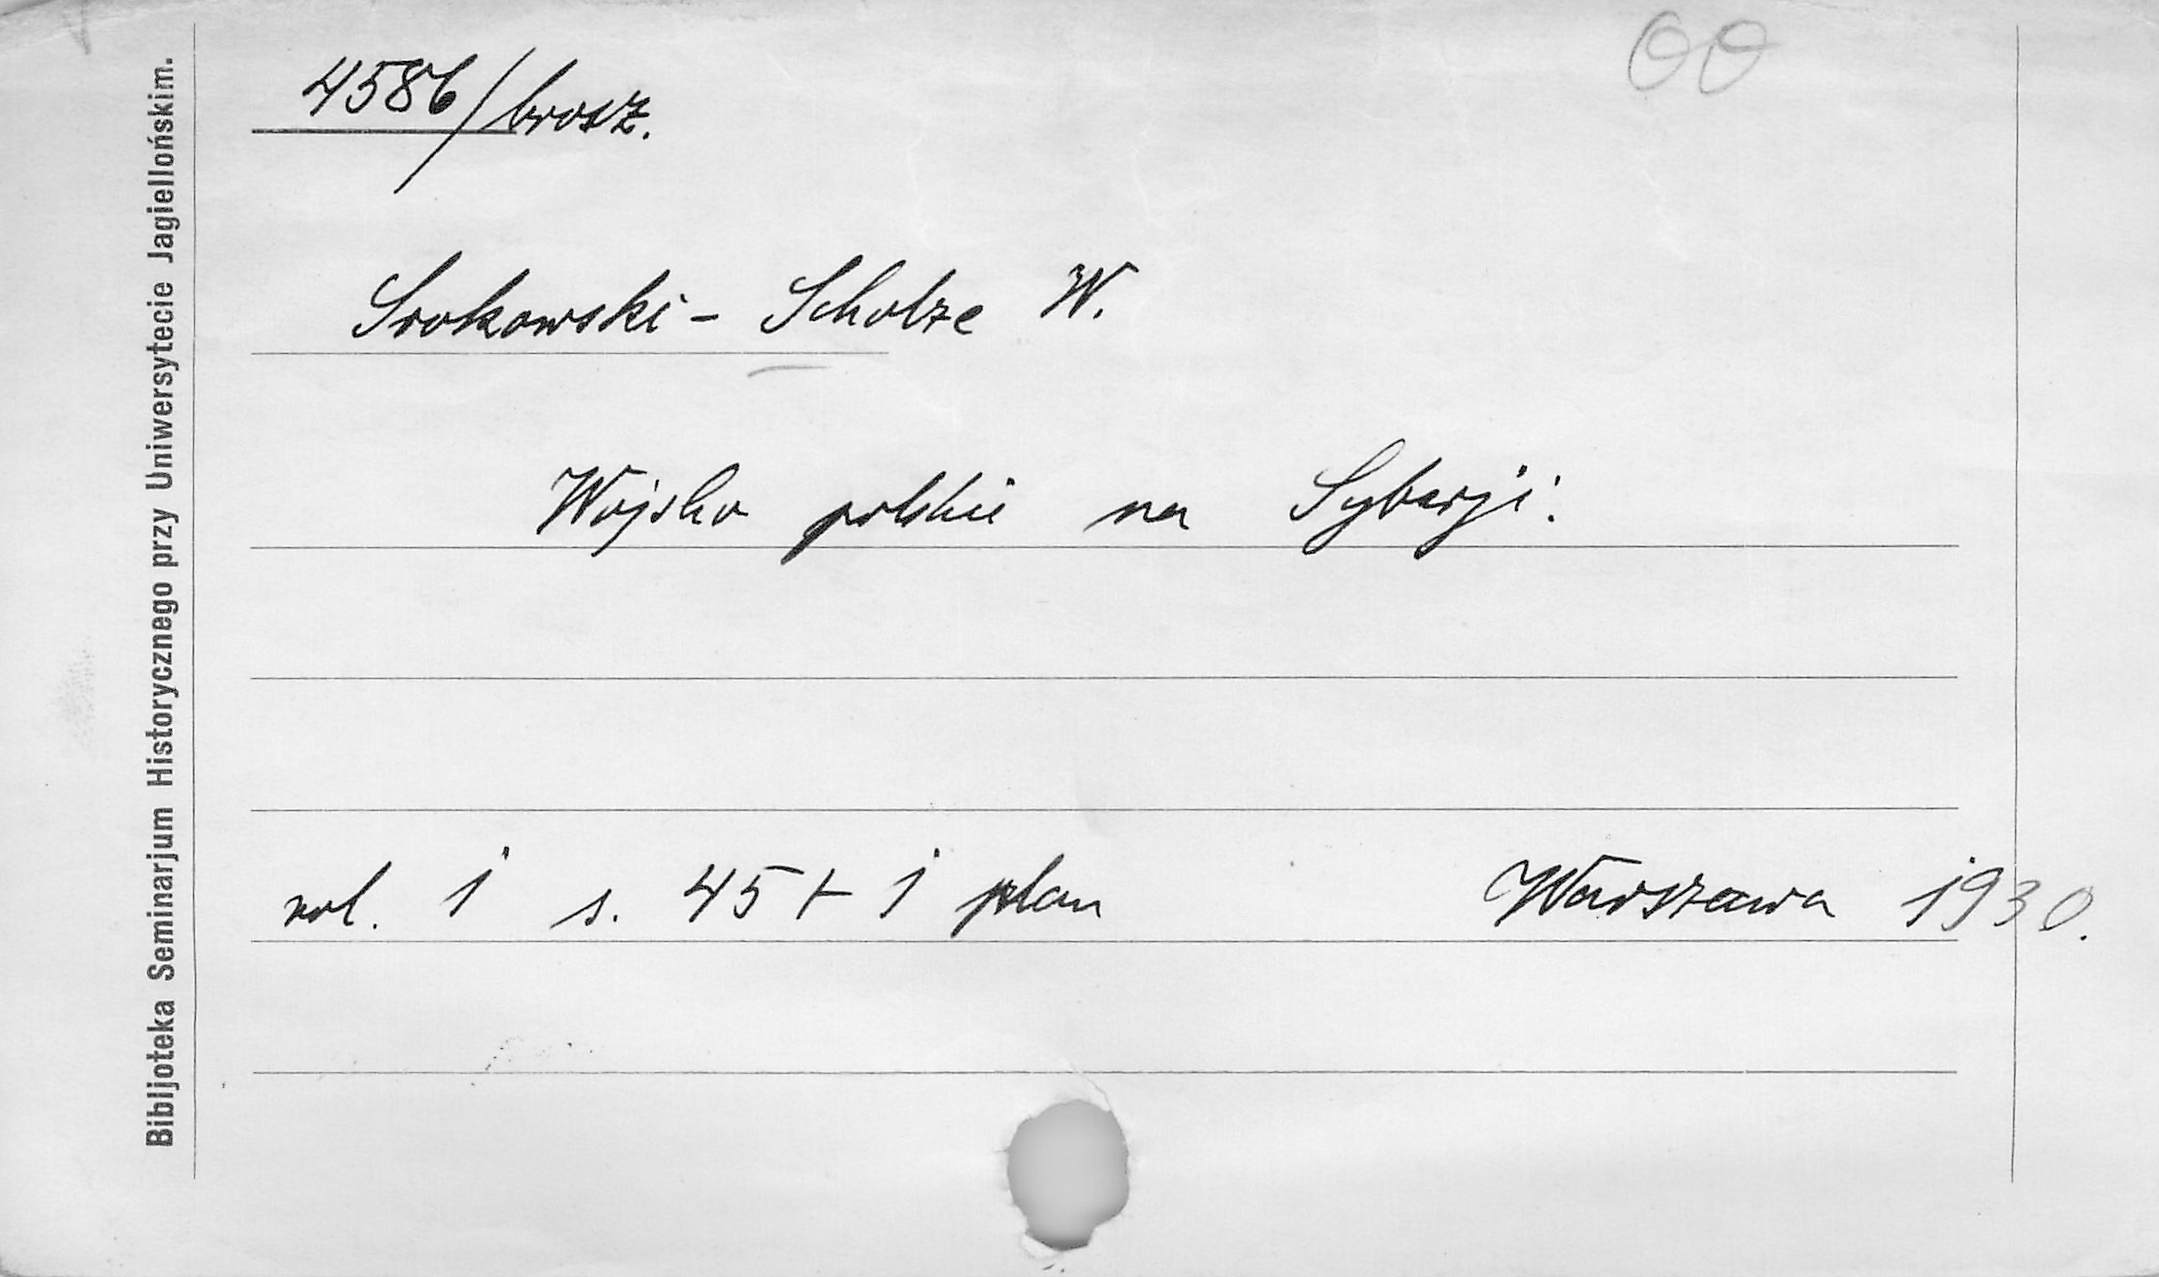 4586/brosz.
OO
Srokowski - Scholze W.
Wojsko polskie na Syberji.
vol. 1 s. 45 + 1 plan Warszawa 1930.
Bibljoteka Seminarjum Historycznego przy Uniwersytecie Jagiellońskim.